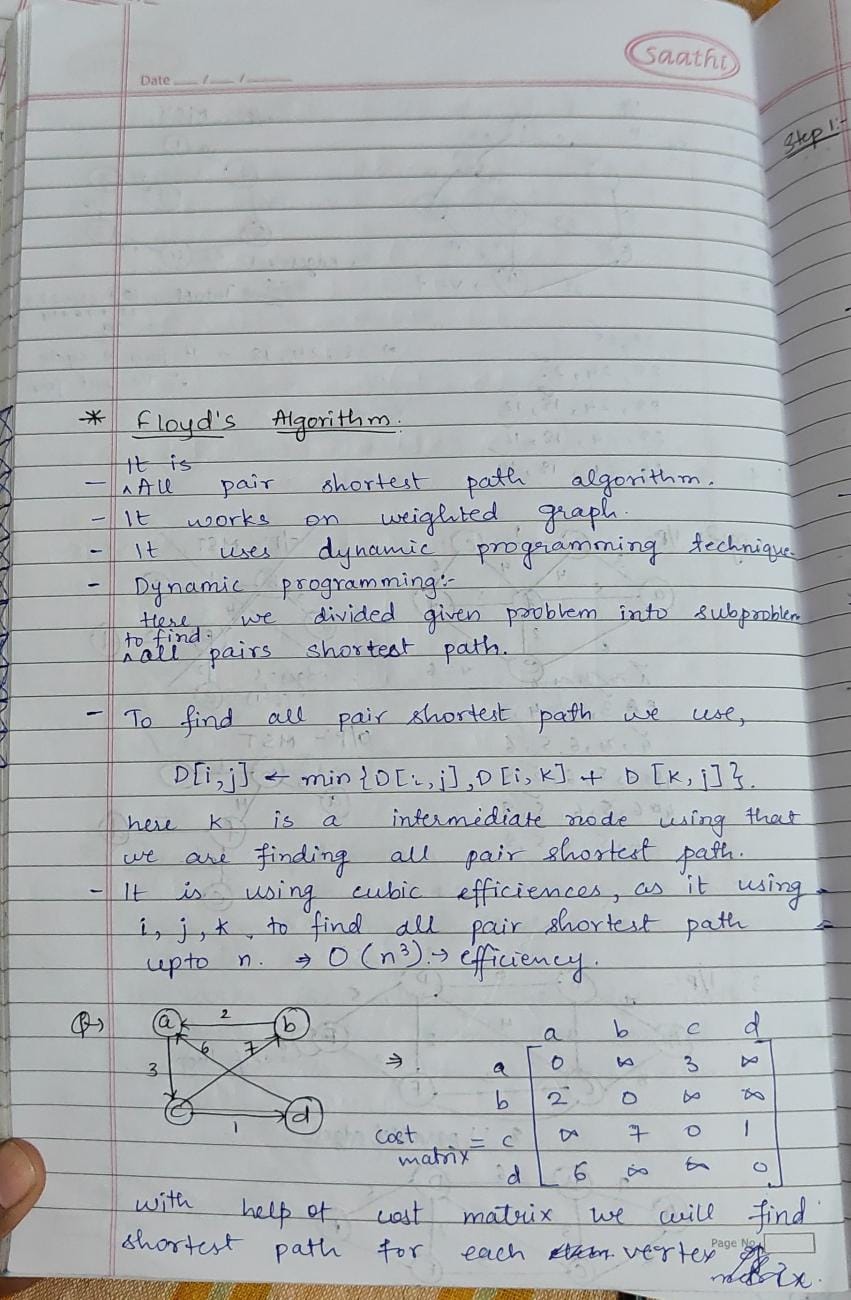 saathi
Date __/__/__
Step 1:-
* Floyd's Algorithm.
It is
- ^All pair shortest path algorithm.
- It works on weighted graph.
- It uses dynamic programming technique.
- Dynamic programming:-
Here we divided given problem into subproblem
to find
^all pairs shortest path.
- To find all pair shortest path we use,
D[i,j] ← min {D[i,j], D[i,k] + D[k,j]}.
here k is a intermediate node using that
we are finding all pair shortest path.
- It is using cubic efficiences, as it using
i, j, k, to find all pair shortest path
upto n. ⇒ O(n³) → efficiency.
Q→
a 2 b
3 6 7
c 1 d
⇒
a b c d
a 0 ∞ 3 ∞
b 2 0 ∞ ∞
cost matrix = c ∞ 7 0 1
d 6 ∞ ∞ 0
with help of cost matrix we will find
shortest path for each vertex of
matrix.
Page No.